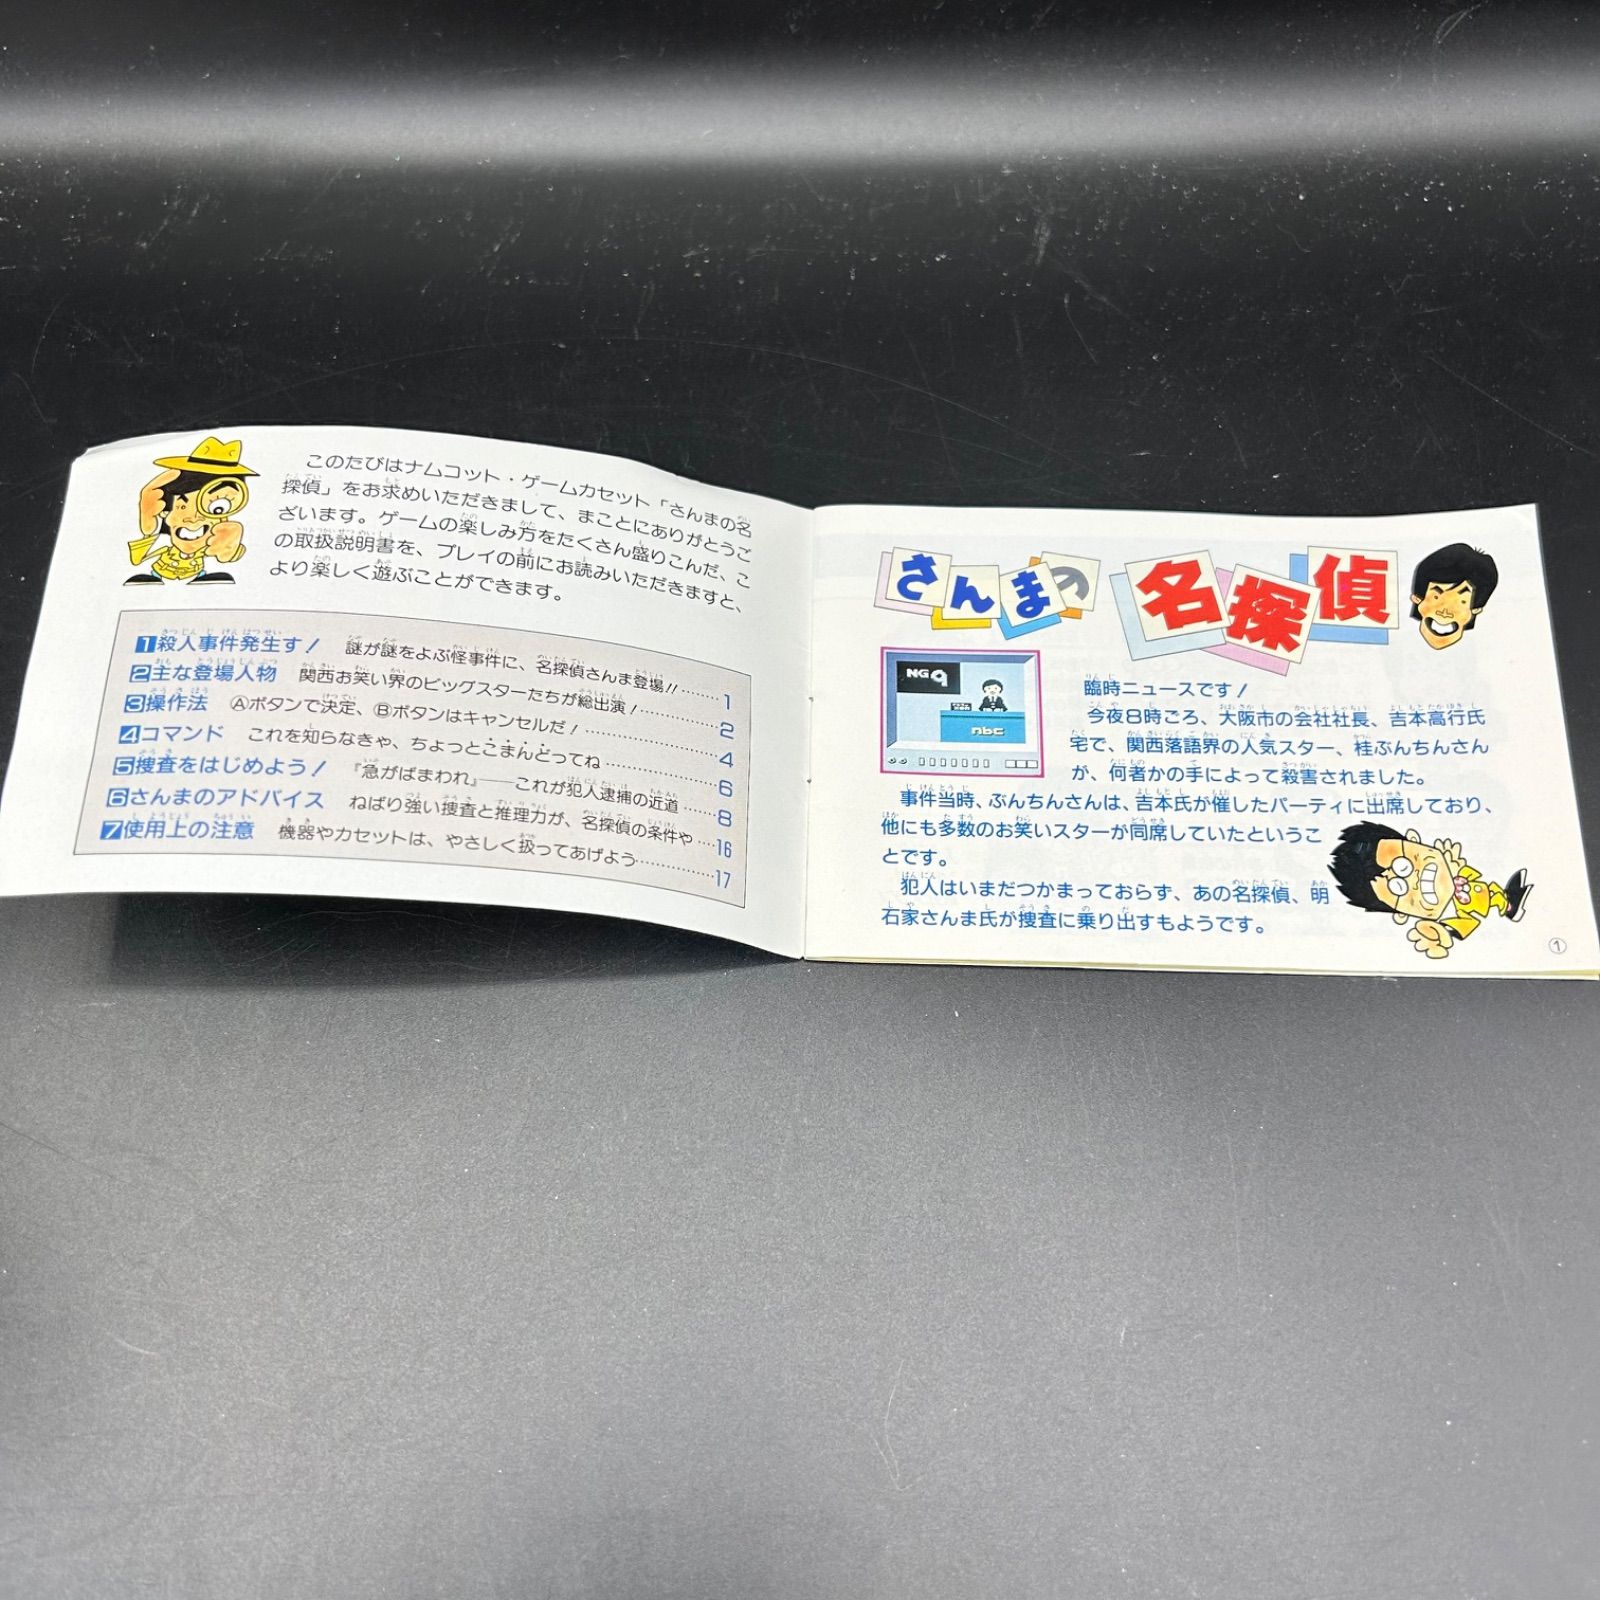 このたびはナムコット・ゲームカセット「さんまの名
探偵」をお求めいただきまして、まことにありがとうご
ざいます。ゲームの楽しみ方をたくさん盛りこんだ、こ
の取扱説明書を、プレイの前にお読みいただきますと、
より楽しく遊ぶことができます。
1 殺人事件発生す! 謎が謎をよぶ怪事件に、名探偵さんま登場!!……1
2 主な登場人物 関西お笑い界のビッグスターたちが総出演!……2
3 操作法 Ⓐボタンで決定、Ⓑボタンはキャンセルだ!……4
4 コマンド これを知らなきゃ、ちょっとこまんどってね……6
5 捜査をはじめよう! 『急がばまわれ』――これが犯人逮捕の近道……8
6 さんまのアドバイス ねばり強い捜査と推理力が、名探偵の条件や……16
7 使用上の注意 機器やカセットは、やさしく扱ってあげよう……17
さんまの名探偵
NG9
nbc
臨時ニュースです!
今夜8時ごろ、大阪市の会社社長、吉本高行氏
宅で、関西落語界の人気スター、桂ぶんちんさん
が、何者かの手によって殺害されました。
事件当時、ぶんちんさんは、吉本氏が催したパーティに出席しており、
他にも多数のお笑いスターが同席していたというこ
とです。
犯人はいまだつかまっておらず、あの名探偵、明
石家さんま氏が捜査に乗り出すもようです。
①